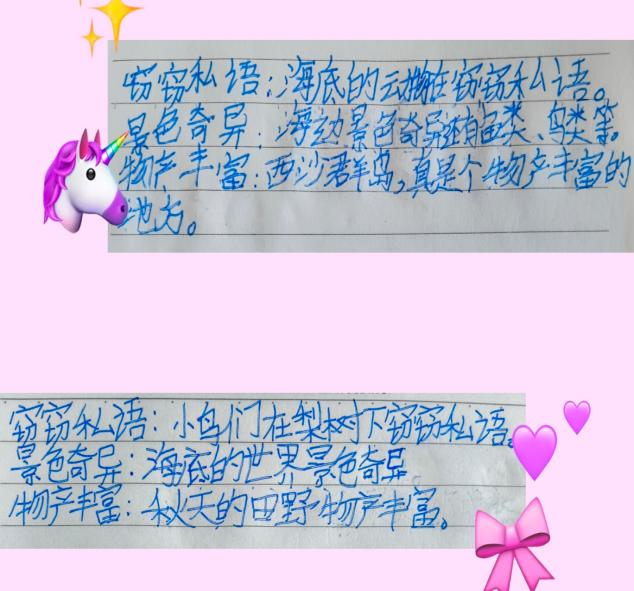 窃窃私语:海底的动物在窃窃私语。
景色奇异:海边景色奇异有鱼类、鸟类等。
物产丰富:西沙群岛,真是个物产丰富的
地方。
窃窃私语:小鸟们在梨树下窃窃私语。
景色奇异:海底的世界景色奇异
物产丰富:秋天的田野物产丰富。